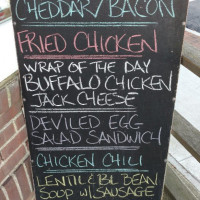 CHEDDAR/BACON
FRIED CHICKEN
WRAP OF THE DAY
BUFFALO CHICKEN
JACK CHEESE
DEVILED EGG
SALAD SANDWICH
CHICKEN CHILI
LENTIL & BL. BEAN
SOUP W/ SAUSAGE